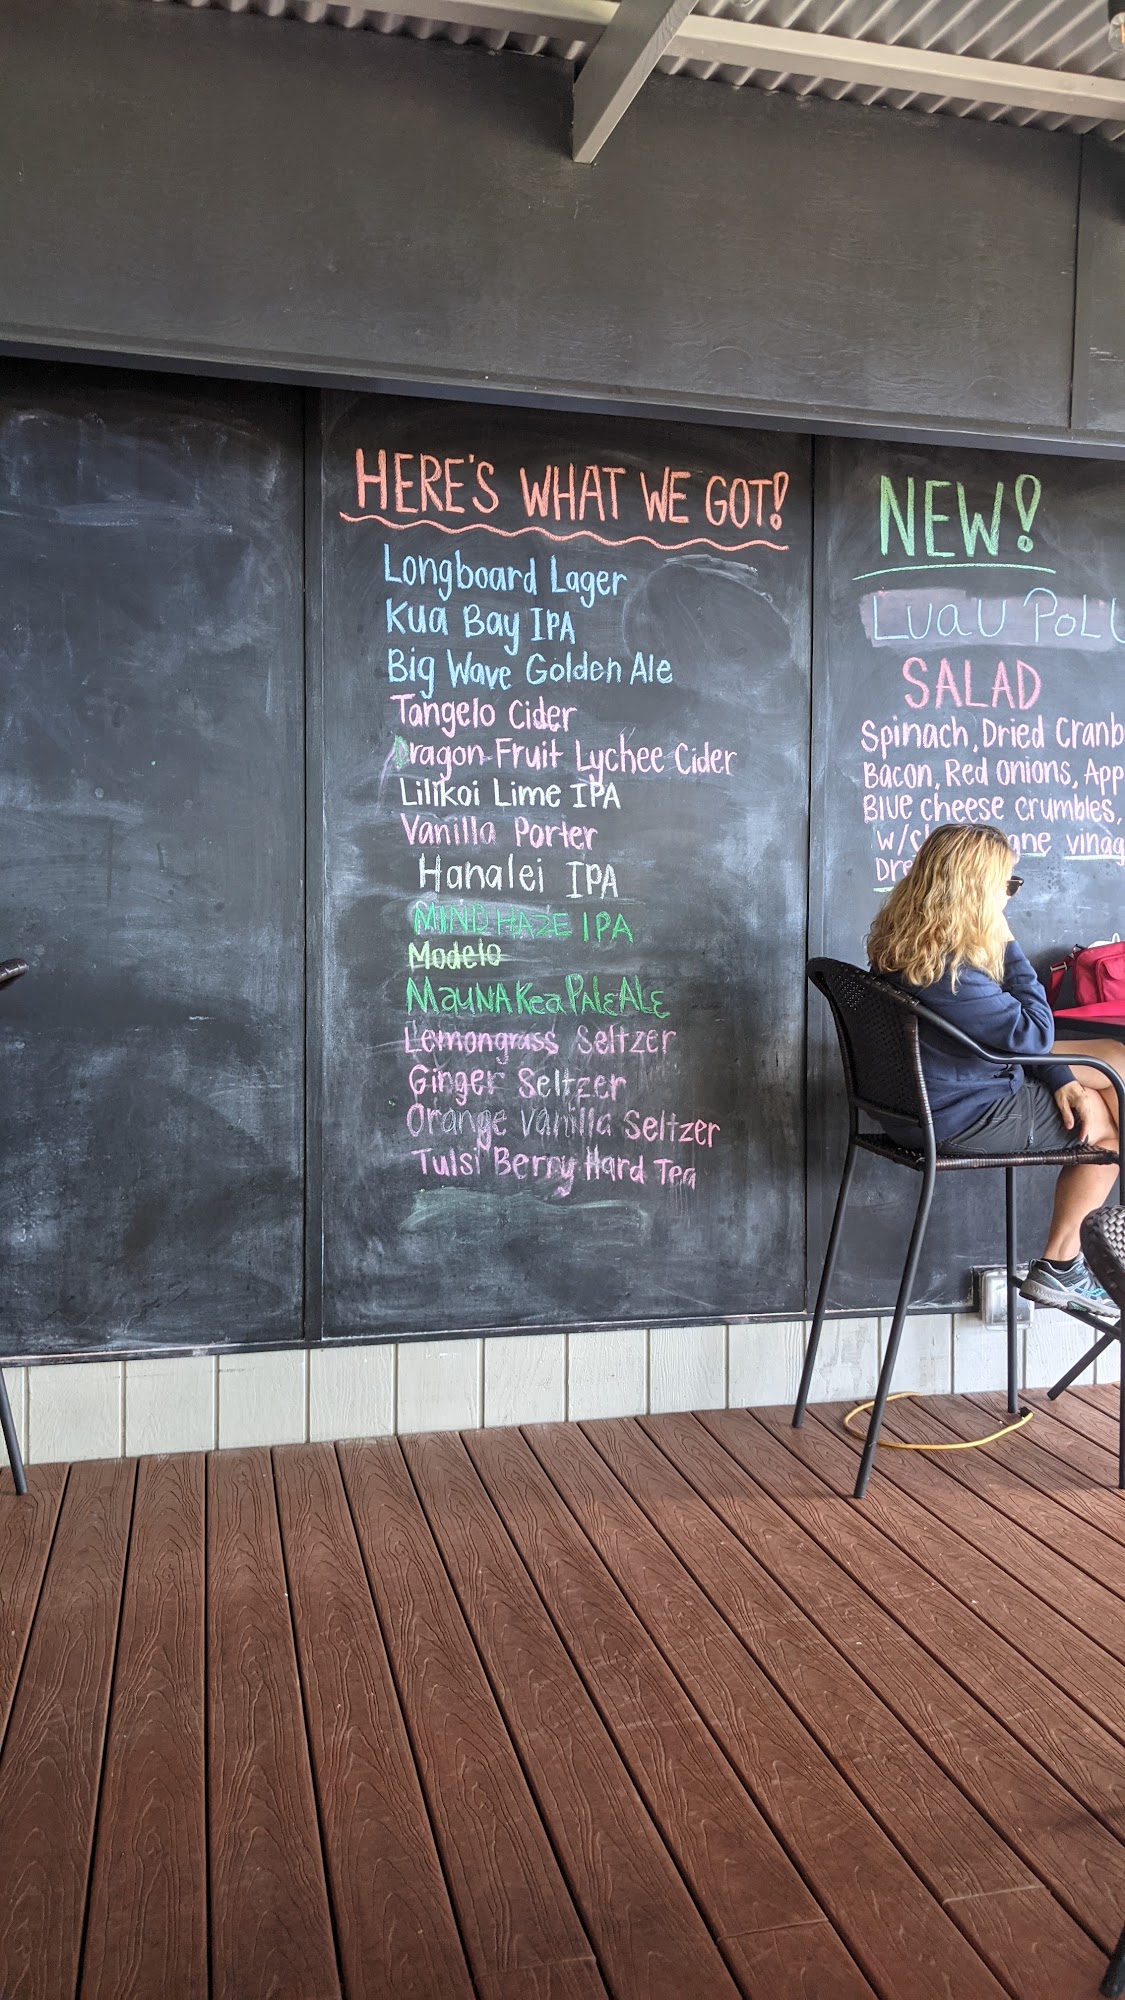 HERE'S WHAT WE GOT!
Longboard Lager
Kua Bay IPA
Big Wave Golden Ale
Tangelo Cider
Dragon Fruit Lychee Cider
Lilikoi Lime IPA
Vanilla Porter
Hanalei IPA
MIND HAZE IPA
Modelo
MauNA Kea PALE ALE
Lemongrass Seltzer
Ginger Seltzer
Orange Vanilla Seltzer
Tulsi Berry Hard Tea
NEW!
Luau
SALAD
Spinach, Dried
Bacon, Red Onions,
Blue cheese crumbles,